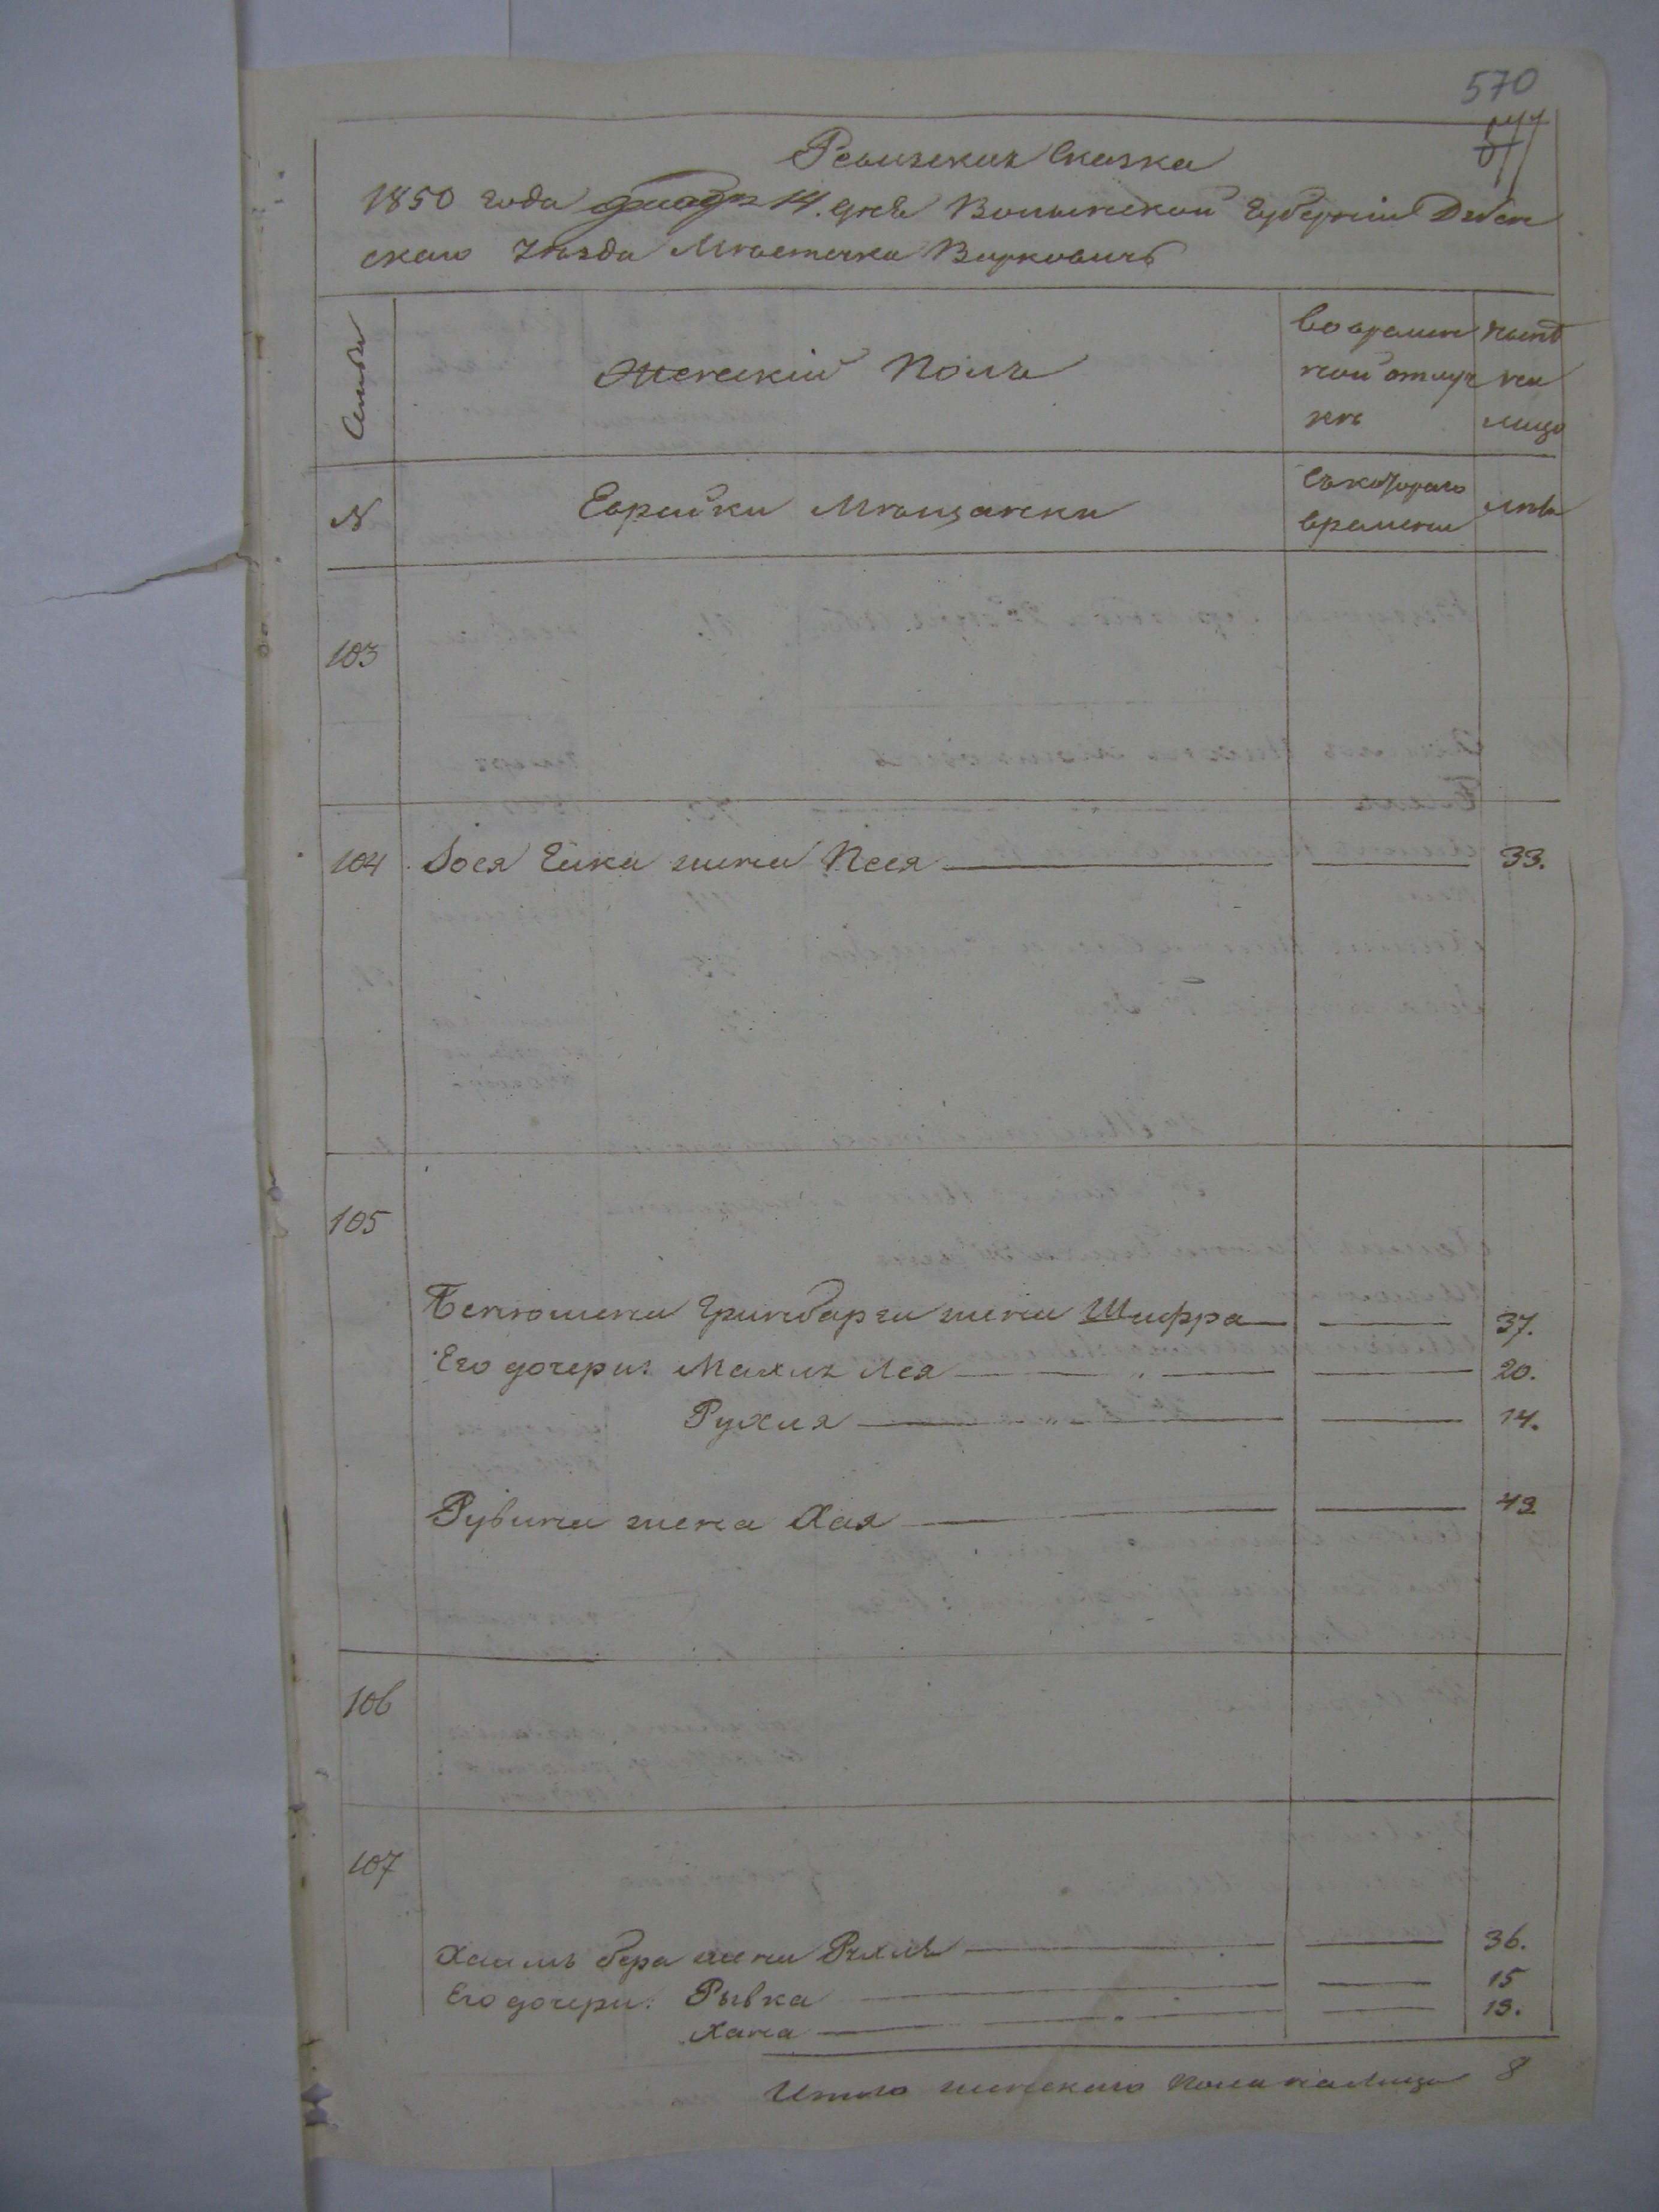 570
577
Ревизская Сказка
1850 года 14. дня Волынской Губерніи Дубен
скаго Уѣзда Мѣстечка Варковичъ
Семьи
Женскій Полъ
Во времен
ной отлуч
кѣ
нынѣ
на
лицо
№
Еврейки Мѣщанки
Съ котораго
времени
лѣта
103
104 Іося Ейка жена Песя 33.
105
Беньюмина Гринбарга жена Шифра 37.
Его дочери: Махля Лея 20.
Рухля 14.
Рувина жена Хая 43
106
107
Хаимъ бера жена Рухля 36.
Его дочери: Рывка 15
Хана 13.
Итого женскаго пола на лицо 8